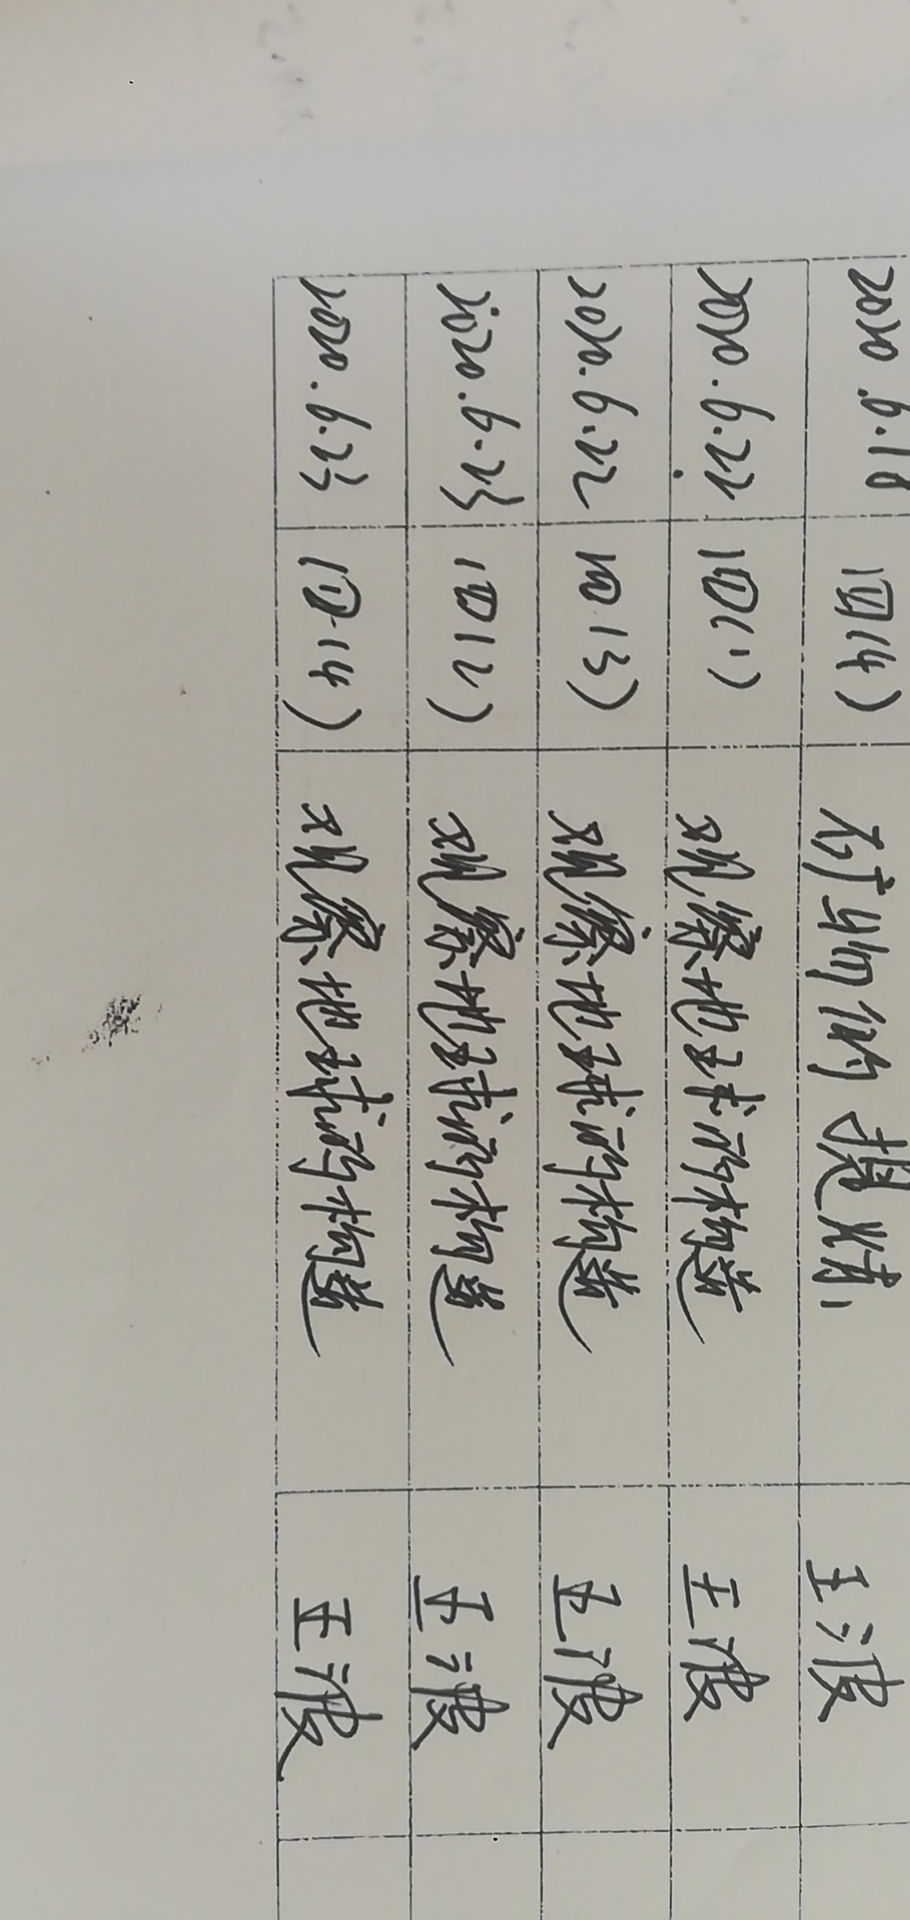 2020.6.18 四(4) 矿物的提炼 王波
2020.6.22 四(1) 观察地球的构造 王波
2020.6.22 四(3) 观察地球的构造 王波
2020.6.23 四(2) 观察地球的构造 王波
2020.6.23 四(4) 观察地球的构造 王波